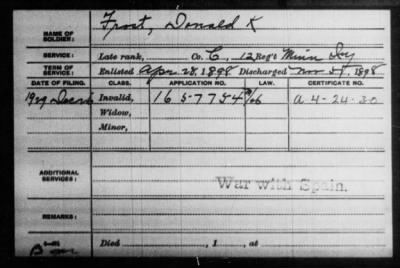 NAME OF SOLDIER: Frost, Donald K
SERVICE: Late rank, Co. C, 12 Reg't Minn Inf
TERM OF SERVICE: Enlisted Apr 28, 1898 Discharged Nov 5, 1898
DATE OF FILING. CLASS. APPLICATION NO. LAW. CERTIFICATE NO.
1929 Invalid, 1657754 A 4-24-30
Widow,
Minor,
ADDITIONAL SERVICES: War with Spain.
REMARKS:
Died , 1 , at